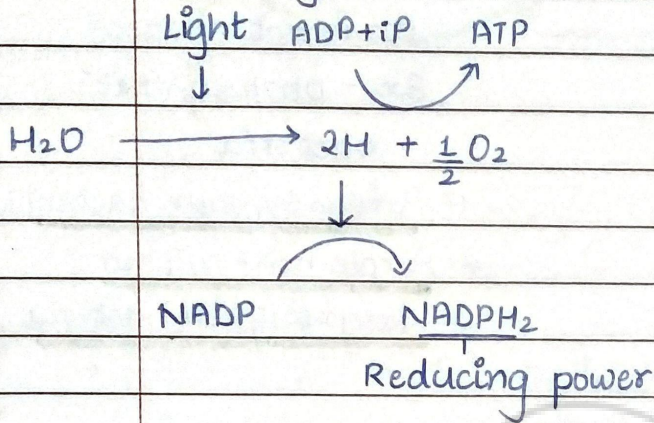 Light ADP+iP ATP
H2O 2H + 1/2 O2
NADP NADPH2
Reducing power